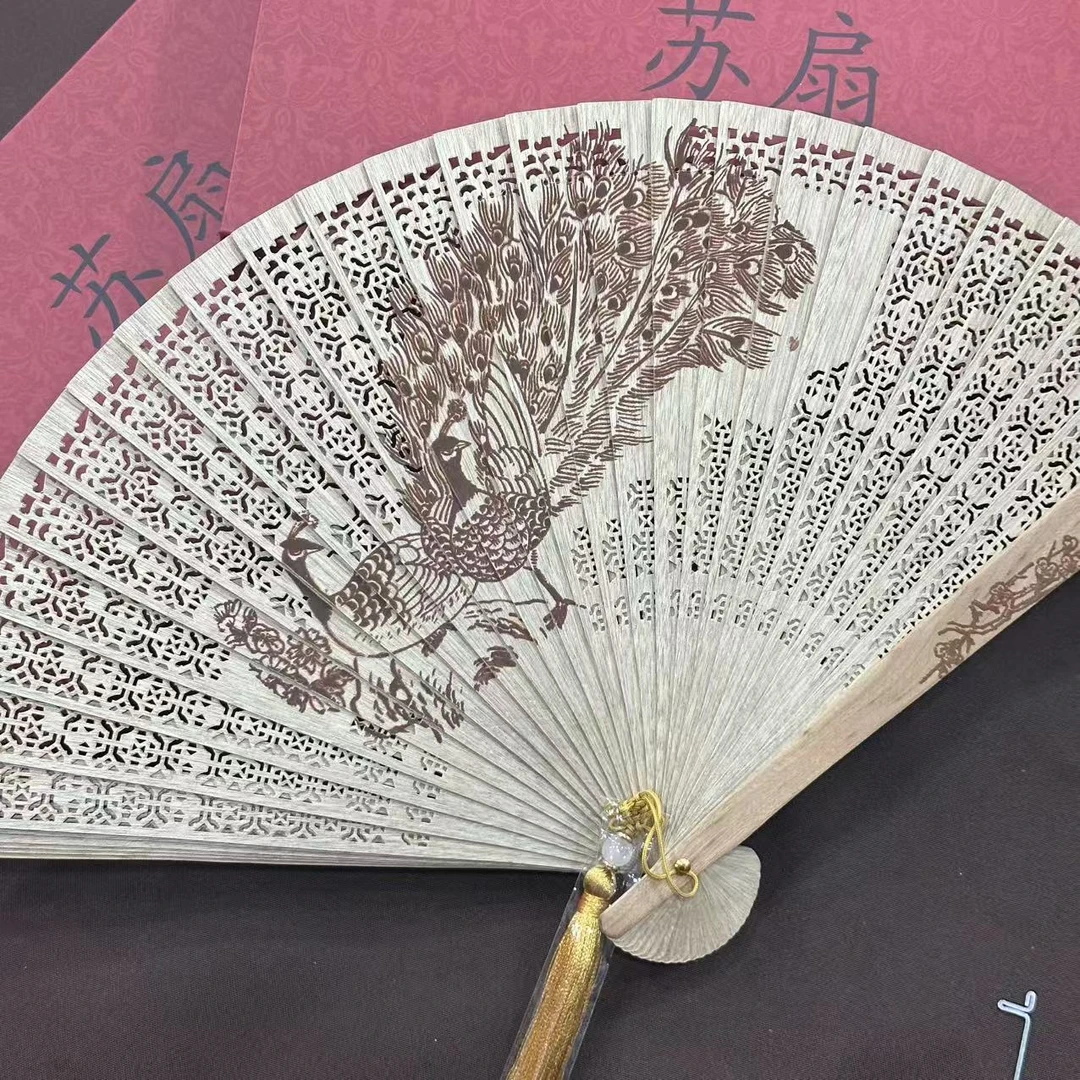 苏扇
苏扇